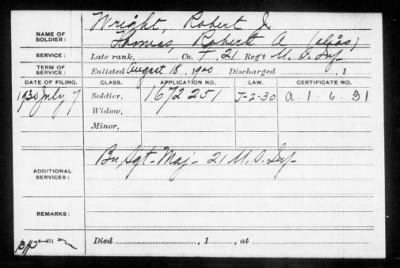 Wright, Robert J.
NAME OF SOLDIER: Thomas, Robert A (alias)
SERVICE: Late rank, Co. F, 21 Reg't U. S. Inf.
TERM OF SERVICE: Enlisted August 18, 1900 Discharged , 1
DATE OF FILING. CLASS. APPLICATION NO. LAW. CERTIFICATE NO.
1930 July 7 Soldier, 1672251 J-2-30 A-1-6-31
Widow,
Minor,
ADDITIONAL SERVICES: Bn. Sgt-Maj- 21 U.S. Inf-
REMARKS:
Died , 1 , at